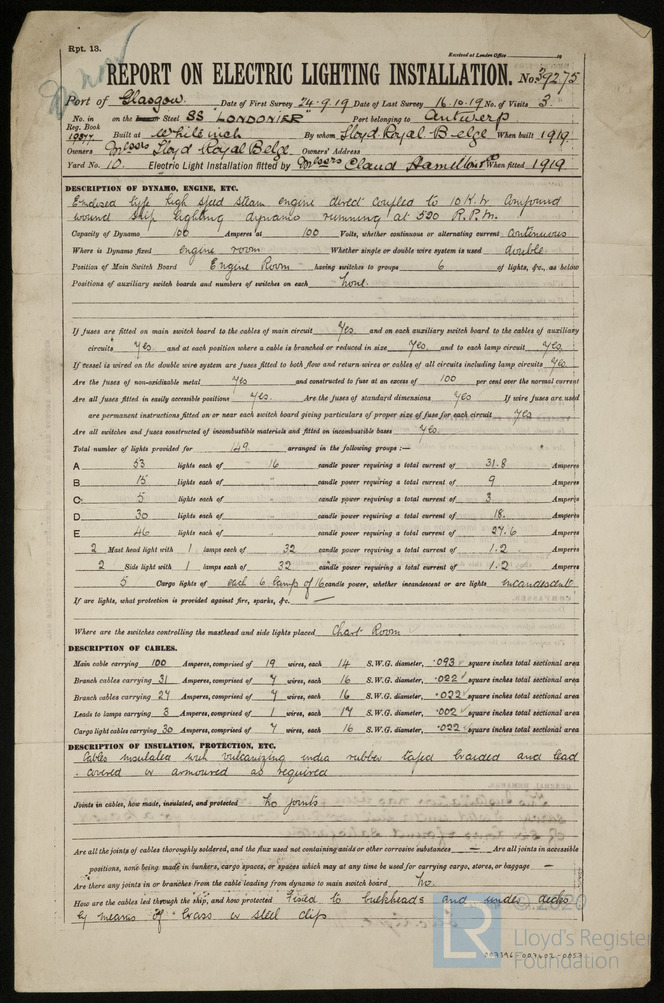 Rpt. 13.
Received at London Office 19
REPORT ON ELECTRIC LIGHTING INSTALLATION. No. 39275
Port of Glasgow. Date of First Survey 24.9.19 Date of Last Survey 16.10.19 No. of Visits 3.
No. in Reg. Book on the Steel SS "LONDONIER" Port belonging to Antwerp
Built at Whiteinch By whom Lloyd Royal Belge When built 1919.
Owners Messrs Lloyd Royal Belge Owners' Address
Yard No. 10. Electric Light Installation fitted by Messrs Claud Hamilton Ld When fitted 1919
DESCRIPTION OF DYNAMO, ENGINE, ETC.
Enclosed type high speed steam engine direct coupled to 10 K.W. Compound
wound ship lighting dynamo running at 520 R.P.M.
Capacity of Dynamo 100 Amperes at 100 Volts, whether continuous or alternating current continuous
Where is Dynamo fixed engine room Whether single or double wire system is used double
Position of Main Switch Board Engine Room having switches to groups 6 of lights, &c., as below
Positions of auxiliary switch boards and numbers of switches on each none.
If fuses are fitted on main switch board to the cables of main circuit Yes and on each auxiliary switch board to the cables of auxiliary
circuits Yes and at each position where a cable is branched or reduced in size Yes and to each lamp circuit Yes
If vessel is wired on the double wire system are fuses fitted to both flow and return wires or cables of all circuits including lamp circuits Yes
Are the fuses of non-oxidizable metal Yes and constructed to fuse at an excess of 100 per cent over the normal current
Are all fuses fitted in easily accessible positions Yes. Are the fuses of standard dimensions Yes If wire fuses are used
are permanent instructions fitted on or near each switch board giving particulars of proper size of fuse for each circuit Yes
Are all switches and fuses constructed of incombustible materials and fitted on incombustible bases Yes.
Total number of lights provided for 149 arranged in the following groups :—
A 53 lights each of 16 candle power requiring a total current of 31.8 Amperes
B 15 lights each of " candle power requiring a total current of 9 Amperes
C 5 lights each of " candle power requiring a total current of 3 Amperes
D 30 lights each of " candle power requiring a total current of 18. Amperes
E 46 lights each of " candle power requiring a total current of 27.6 Amperes
2 Mast head light with 1 lamps each of 32 candle power requiring a total current of 1.2 Amperes
2 Side light with 1 lamps each of 32 candle power requiring a total current of 1.2 Amperes
5 Cargo lights of each 6 lamp of 16 candle power, whether incandescent or arc lights incandescent
If arc lights, what protection is provided against fire, sparks, &c. —
Where are the switches controlling the masthead and side lights placed Chart Room
DESCRIPTION OF CABLES.
Main cable carrying 100 Amperes, comprised of 19 wires, each 14 S.W.G. diameter, .093 square inches total sectional area
Branch cables carrying 31 Amperes, comprised of 7 wires, each 16 S.W.G. diameter, .022 square inches total sectional area
Branch cables carrying 27 Amperes, comprised of 7 wires, each 16 S.W.G. diameter, .022 square inches total sectional area
Leads to lamps carrying 3 Amperes, comprised of 1 wires, each 17 S.W.G. diameter, .002 square inches total sectional area
Cargo light cables carrying 30 Amperes, comprised of 7 wires, each 16 S.W.G. diameter, .022 square inches total sectional area
DESCRIPTION OF INSULATION, PROTECTION, ETC.
Cables insulated with vulcanizing india rubber taped braided and lead
covered or armoured as required
Joints in cables, how made, insulated, and protected no joints
Are all the joints of cables thoroughly soldered, and the flux used not containing acids or other corrosive substances — Are all joints in accessible
positions, none being made in bunkers, cargo spaces, or spaces which may at any time be used for carrying cargo, stores, or baggage —
Are there any joints in or branches from the cable leading from dynamo to main switch board no.
How are the cables led through the ship, and how protected Fixed to bulkheads and under decks
by means of brass or steel clip.
© 2020
LR Lloyd's Register
Foundation
007396-007402-0053